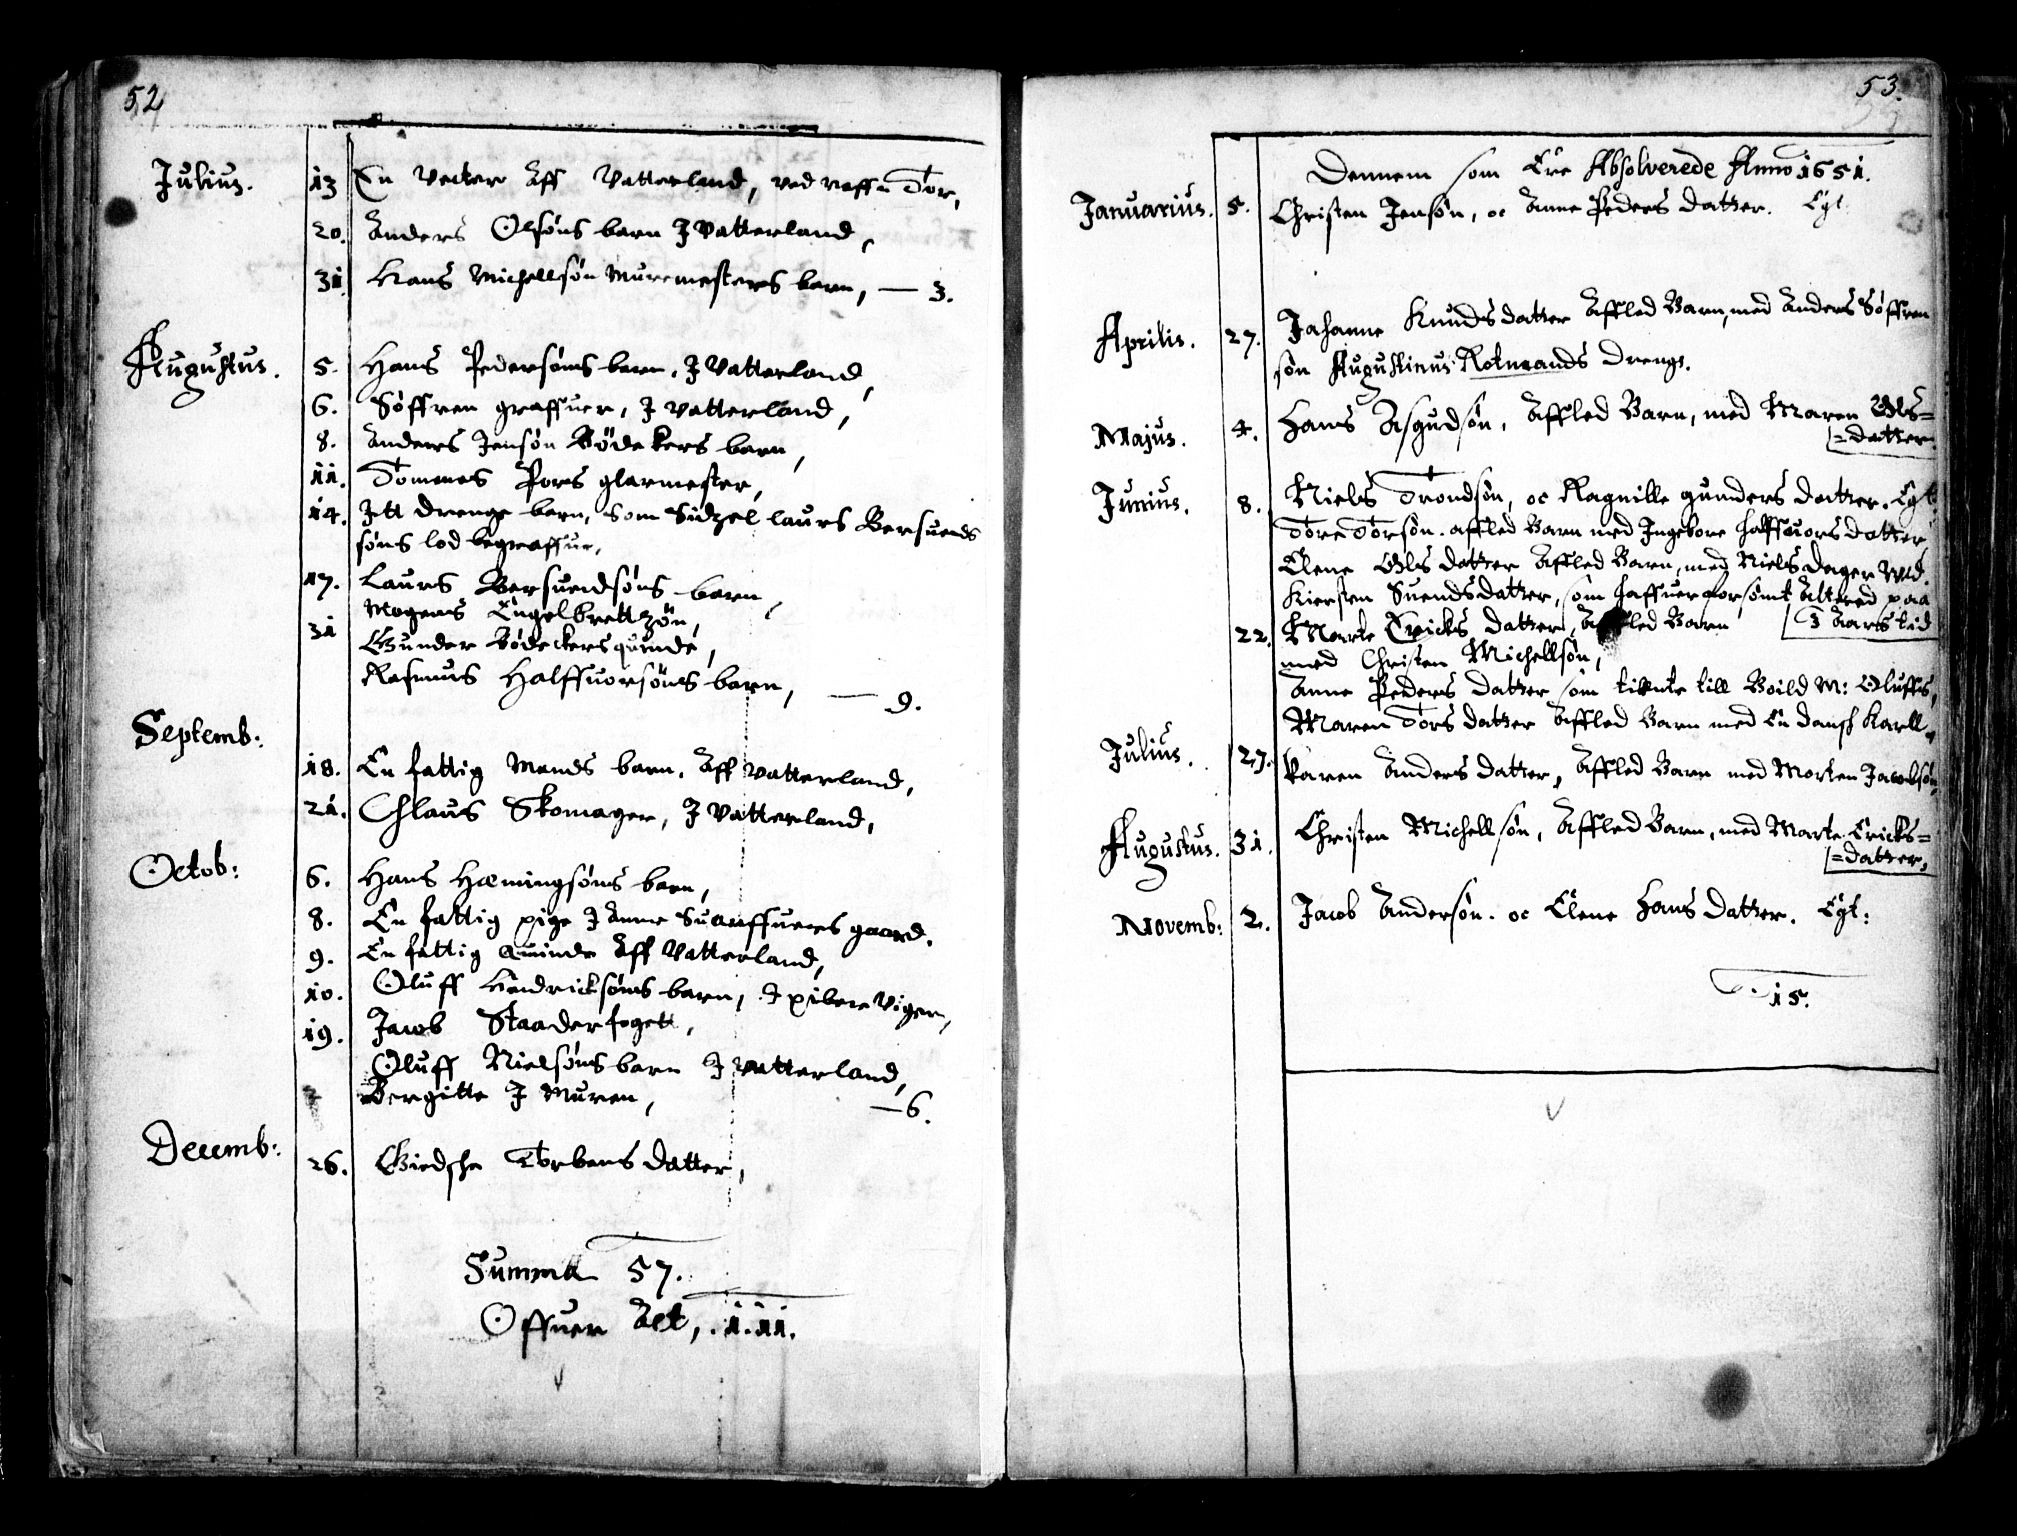 52
Julius. 13 En Vecter Aff Vatterland, ved raffn Tor,
20. Anders Olsøns barn J Vatterland,
31. Hans Michellsøn Muremesters barn, — 3.
Augustus. 5. Hans Pedersøns barn, J Vatterland,
6. Søffren graffuer, J Vatterland,
8. Anders Jensøn Bødekers barn,
11. Tommes Pors glarmester,
14. Jtt drenge barn, som Sidzel laurs Bersuends
søns lod begraffue,
17. Laurs Bersuendsøns barn,
Mogens Engelbrettzøn,
31 Gunder Bødeckers quinde,
Rasmus Halffuorsøns barn, — 9.
Septemb:
18. En fattig Mands barn, Aff Vatterland,
21. Chlaus Skomager, J Vatterland,
Octob: 6. Hans Hemingsøns barn,
8. En fattig pige J Anne Suanffuers gaard.
9. En fattig quinde Aff Vatterland,
10. Oluff Hendricksøns barn, J pibere Vigen,
19. Jacob Staaderfogett,
Oluff Nielsøns barn J Vatterland,
Bergitte J Muren, — 6.
Decemb: 26. Giedsche Torbens datter,
Summa 57.
Offuer Alt, .1.11.
53.
Dennem som Ere Absolverede Anno 1651.
Januarius. 5. Christen Jensøn, oc Anne Peders datter. Egt
Aprilis. 27. Johanne Knuds datter Affled Barn, med Anders Søffren
søn Augustinus Rotmands dreng.
Majus. 4. Hans Asgudsøn, Affled Barn, med Maren Ols=
=datter.
Junius. 8. Niels Trondsøn, oc Ragnille gunders datter. Egt.
Tore Torsøn. affled Barn med Jngebore halffuors datter
Elene Ols datter Affled Barn, med Niels Dager Wed.
Kiersten Suends datter, som haffuer forsømt Altered paa
3 Aars tid
22. Marte Ericks datter, Affled Barn
med Christen Michellsøn,
Anne Peders datter som tiente till Boild M: Oluffs,
Maren Tors datter Affled Barn med En dansk Karll.
Julius. 27. Karen Anders datter, Affled Barn med Morten Jacobsøn,
Augustus. 31. Christen Michellsøn, Affled Barn, med Marte Ericks=
=datter,
Novemb: 2. Jacob Andersøn. oc Elene Hans datter. Egt:
15.